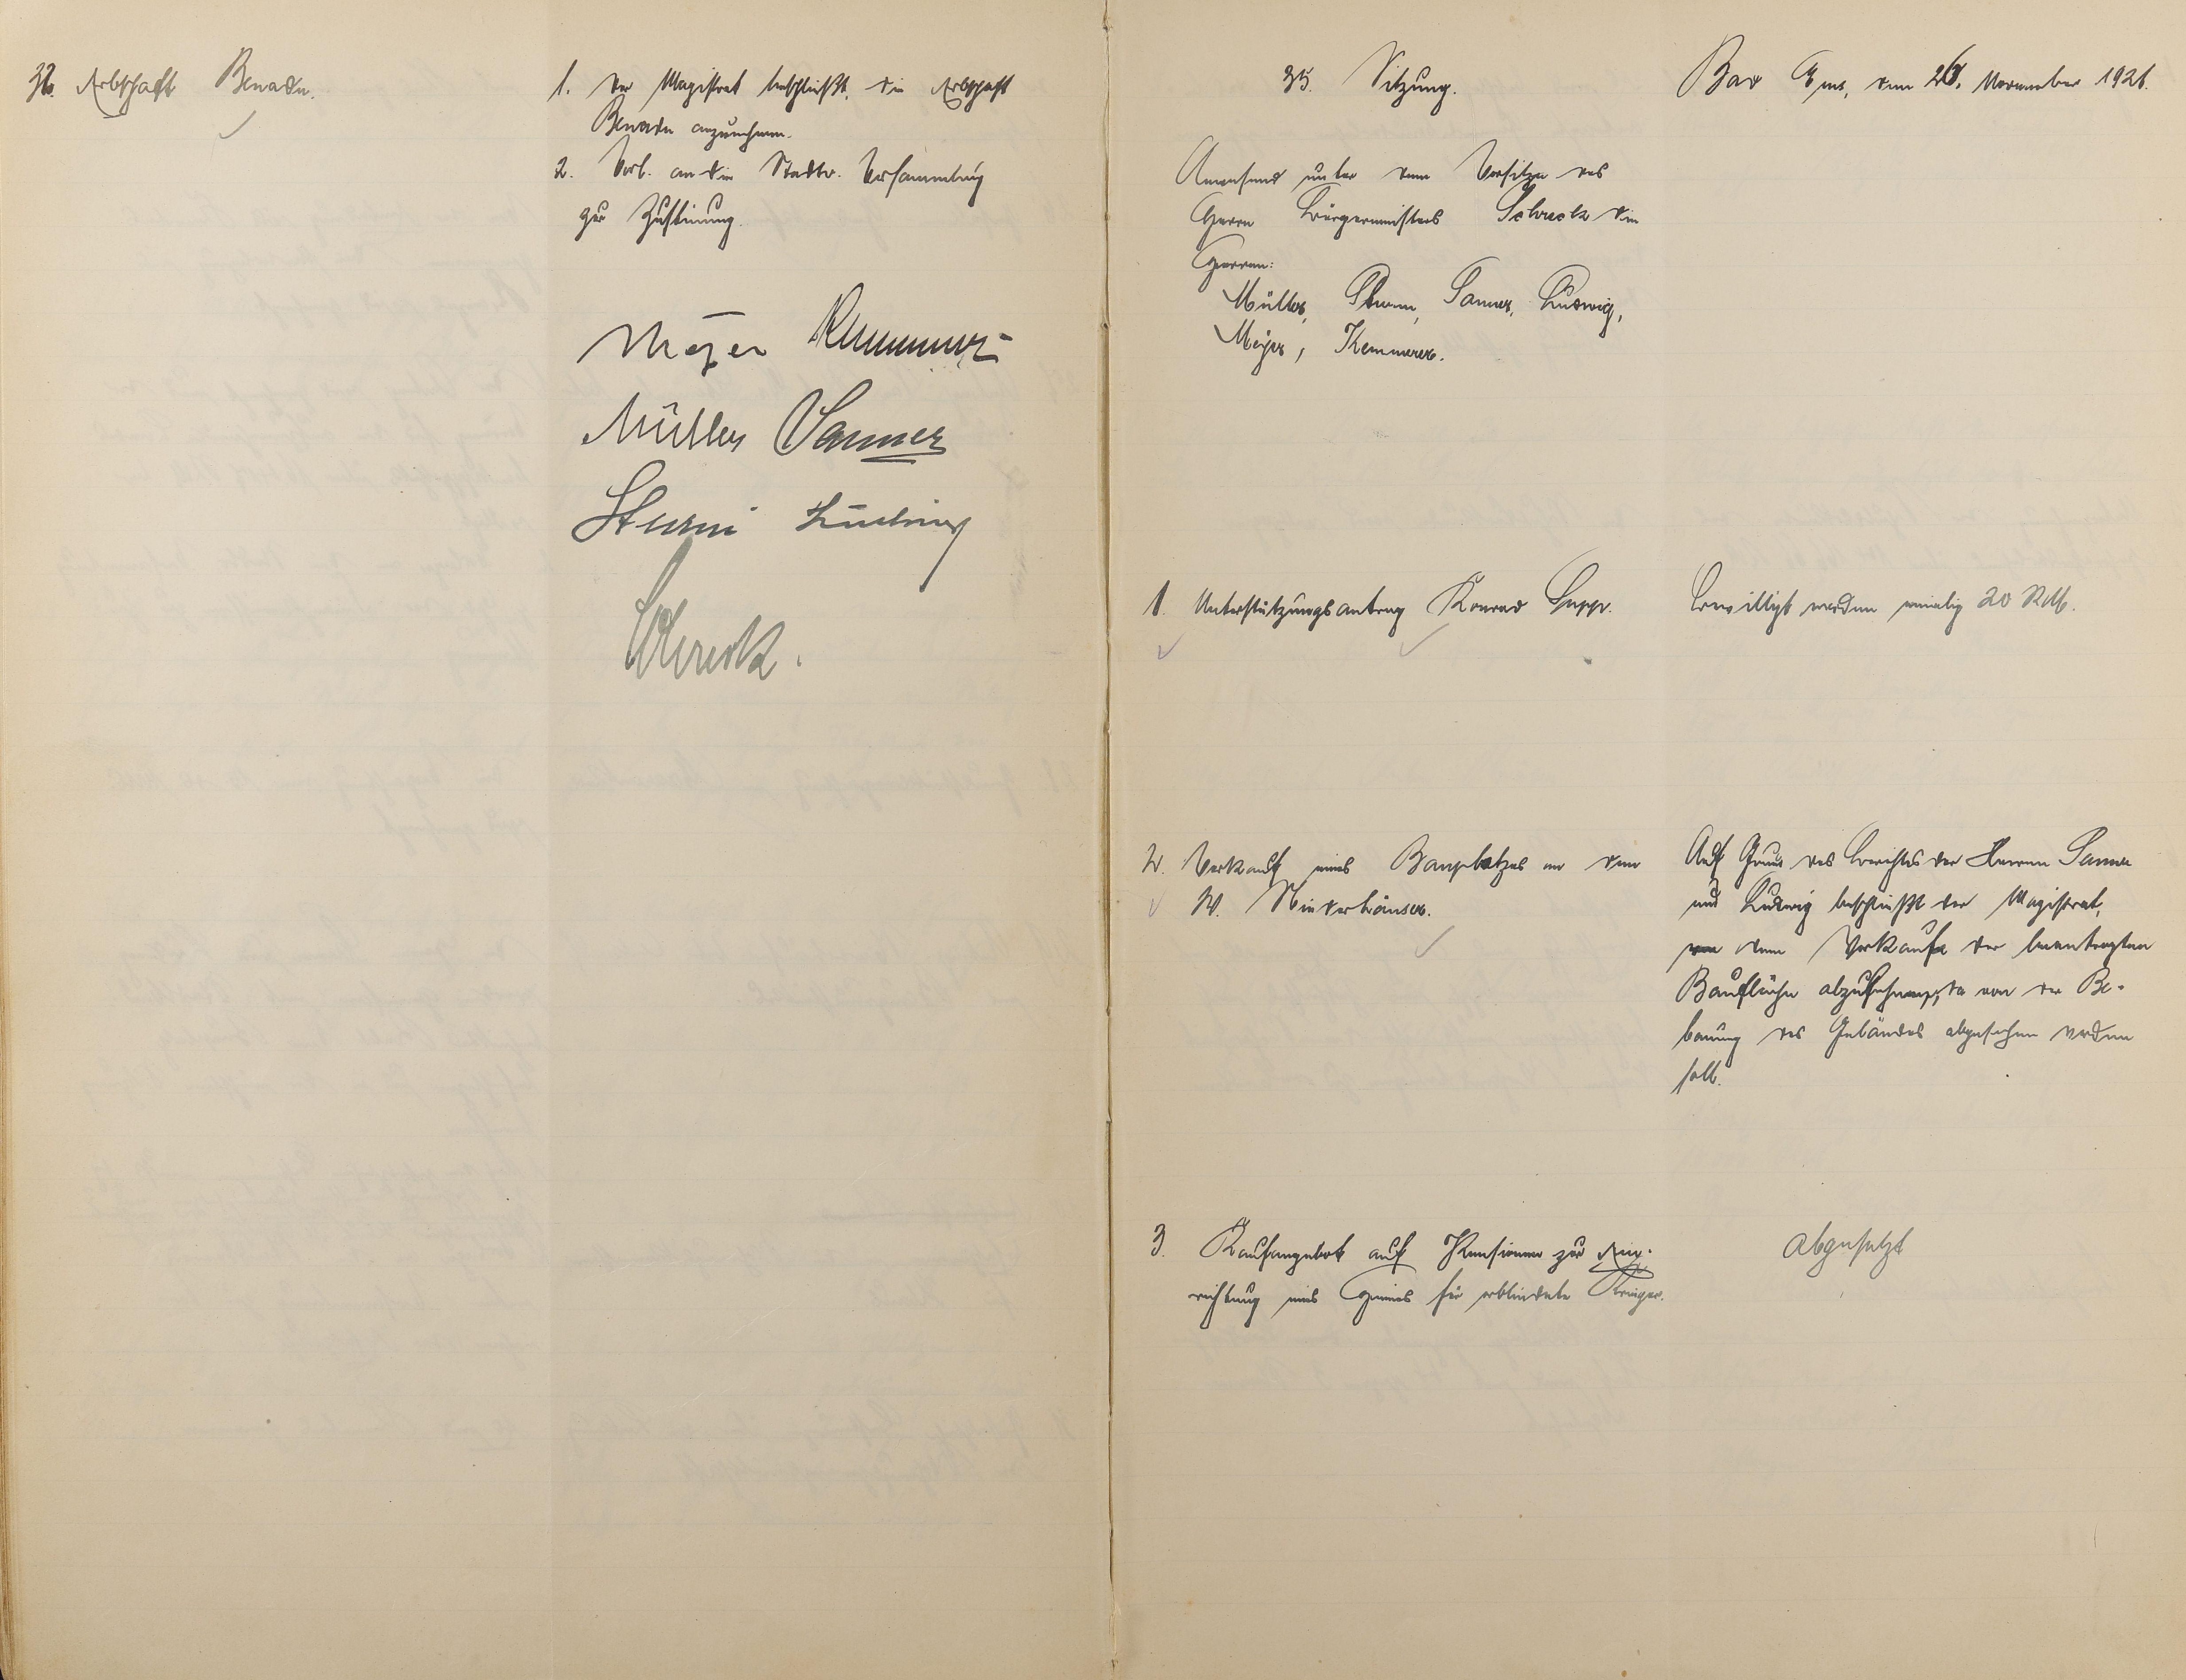 32. Erbschaft Benade.
1. Der Magistrat beschließt, die Erbschaft
Benade anzunehmen.
2. Vorl. an die Stadtv. Versammlung
zur Zustimmung.
Meyer Kemmerer
Müller Sanner
Sturm Ludwig
Schreck.
35. Sitzung.
Bad Ems, den 26. November 1926.
Anwesend unter dem Vorsitze des
Herrn Bürgermeisters Schreck die
Herren:
Müller, Sturm, Sanner, Ludwig,
Meyer, Kemmerer.
1. Unterstützungsantrag Konrad Supp.
Bewilligt werden einmalig 20 RM.
2. Verkauf eines Bauplatzes an den
W. Niederhäuser.
Auf Grund des Berichtes der Herren Sanner
und Ludwig beschließt der Magistrat,
von dem Verkaufe der beantragten
Baufläche abzusehen, da von der Be-
bauung des Geländes abgesehen werden
soll.
3. Kaufangebot auf Pensionen zur Ein-
richtung eines Heimes für erblindete Krieger.
abgesetzt